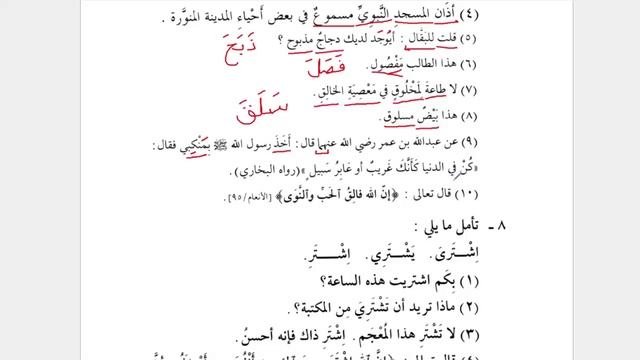 (٤) أذَان المسجدِ النَّبويِّ مسموعٌ في بعض أَحْياء المدينة المنوَّرة .
(٥) قلت للبقَّال : أيُوجَد لديك دجاجٌ مذبوح ؟ ذَبَحَ
(٦) هذا الطالب مَفْصُول . فَصَلَ
(٧) لا طاعةَ لمَخْلُوقٍ في مَعْصِيَةِ الخالِقِ.
(٨) هذا بَيْضٌ مسلوق. سَلَقَ
(٩) عن عبدالله بن عمر رضي الله عنهما قال: أَخَذَ رسول الله ﷺ بِمَنْكِبي فقال:
«كُنْ في الدنيا كَأَنَّكَ غَريبٌ أو عَابِرُ سَبيلٍ» (رواه البخاري).
(١٠) قال تعالى : ﴿إنَّ الله فالِقُ الحَبِّ والنَّوَى﴾ [الأنعام/٩٥].
٨ ـ تأمل ما يلي :
اِشْتَرَى. يَشْتَرِي. اِشْتَرِ.
(١) بِكَم اشتريت هذه الساعة؟
(٢) ماذا تريد أن تَشْتَرِيَ مِن المكتبة؟
(٣) لا تَشْتَرِ هذا المُعْجَم. اِشْتَرِ ذاك فإنه أحسنُ.